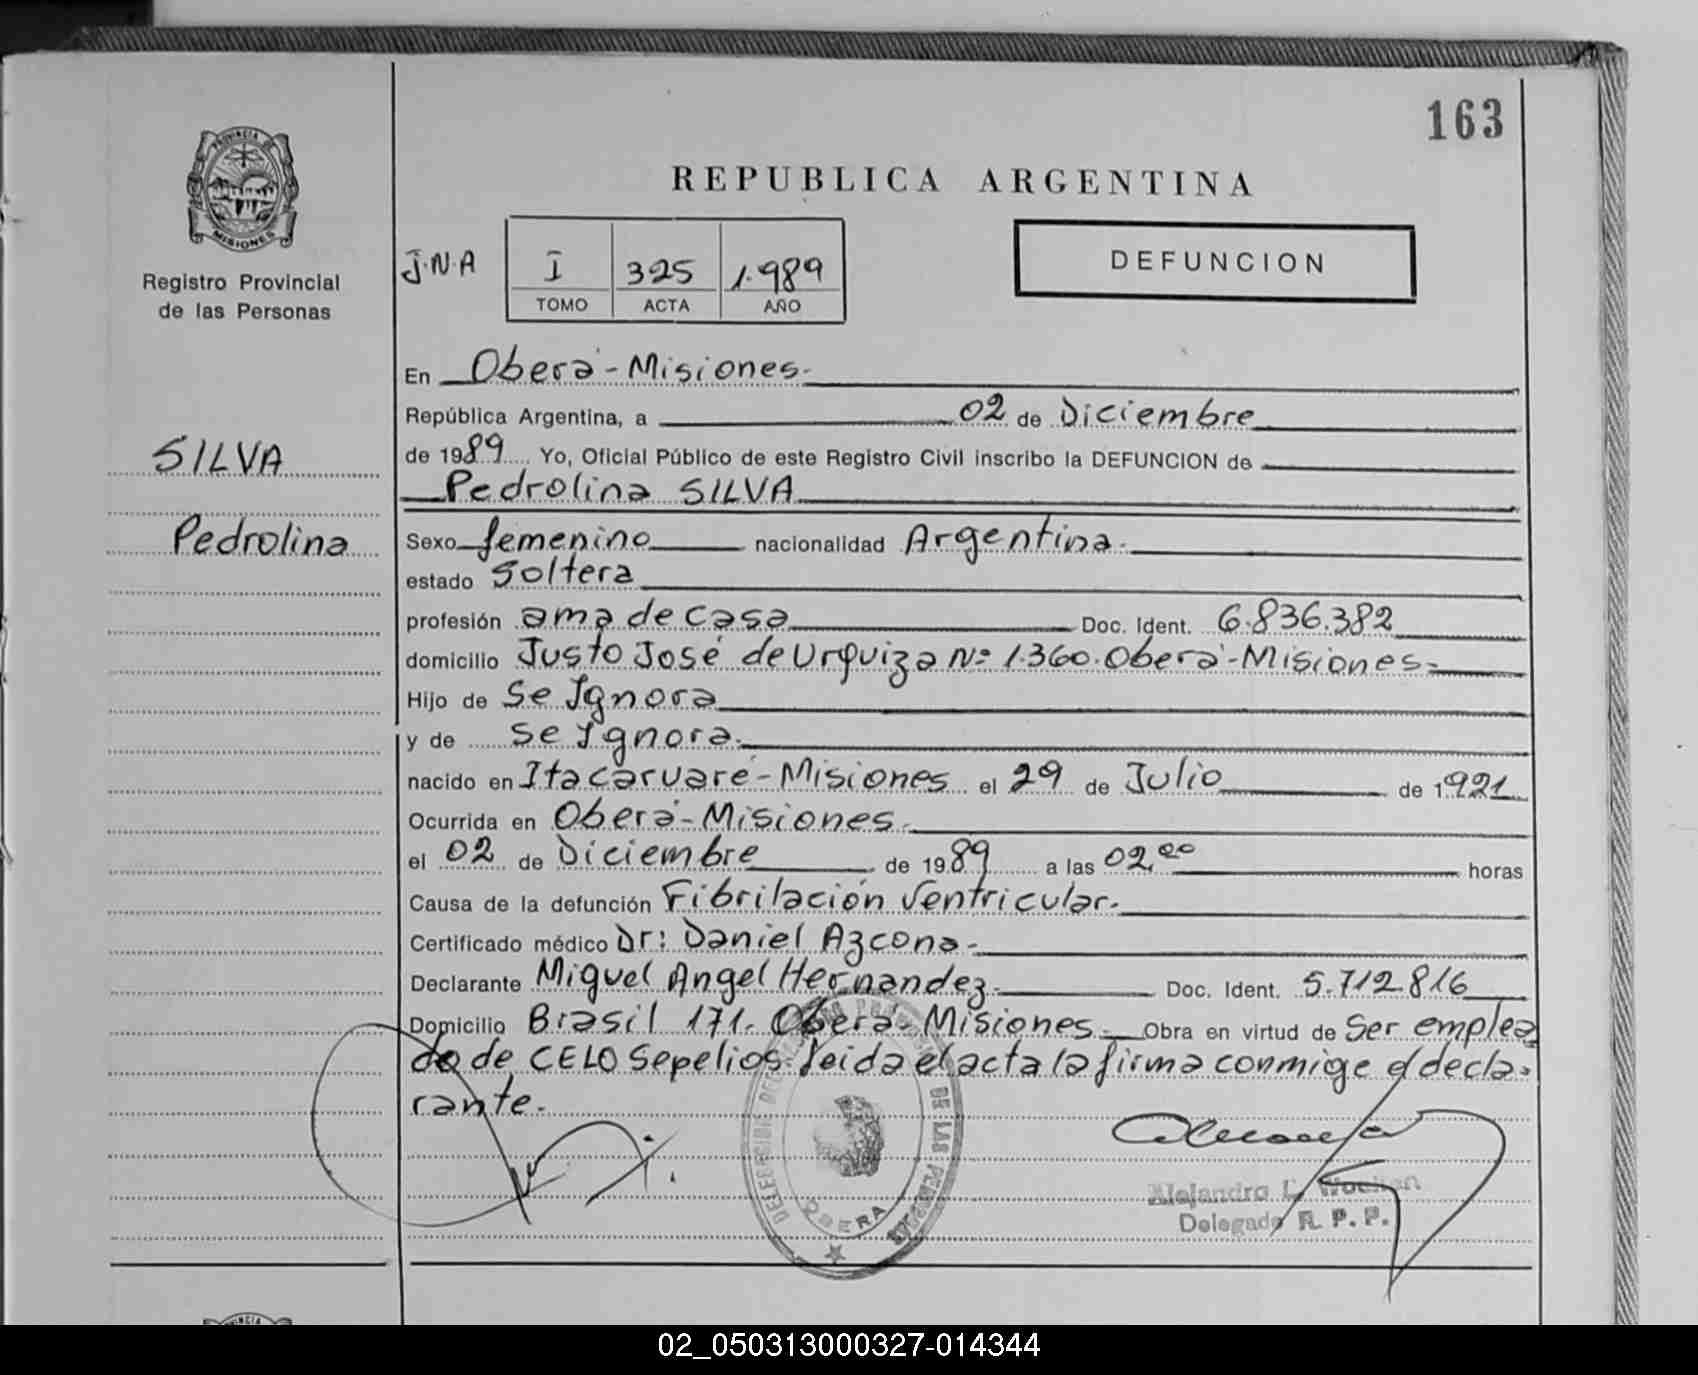 163
PROVINCIA DE
MISIONES
Registro Provincial
de las Personas
REPUBLICA ARGENTINA
J.N.A
I 325 1.989
TOMO ACTA AÑO
DEFUNCION
En Oberá - Misiones.
República Argentina, a 02 de Diciembre
de 1989 Yo, Oficial Público de este Registro Civil inscribo la DEFUNCION de
SILVA
Pedrolina SILVA
Pedrolina
Sexo femenino nacionalidad Argentina.
estado Soltera
profesión ama de casa Doc. Ident. 6.836.382
domicilio Justo José de Urquiza Nº 1.360. Oberá - Misiones.
Hijo de Se Ignora
y de Se Ignora.
nacido en Itacaruaré - Misiones el 29 de Julio de 1921
Ocurrida en Oberá - Misiones.
el 02 de Diciembre de 1989 a las 02,00 horas
Causa de la defunción Fibrilación Ventricular.
Certificado médico Dr: Daniel Azcona.
Declarante Miguel Angel Hernandez. Doc. Ident. 5.712.816
Domicilio Brasil 171. Oberá - Misiones. Obra en virtud de Ser emplea
do de CELO Sepelios. leida el acta la firma conmigo el decla-
rante.
DE LAS PERSONAS
OBERA
Alejandro L.
Delegado R. P. P.
02_050313000327-014344